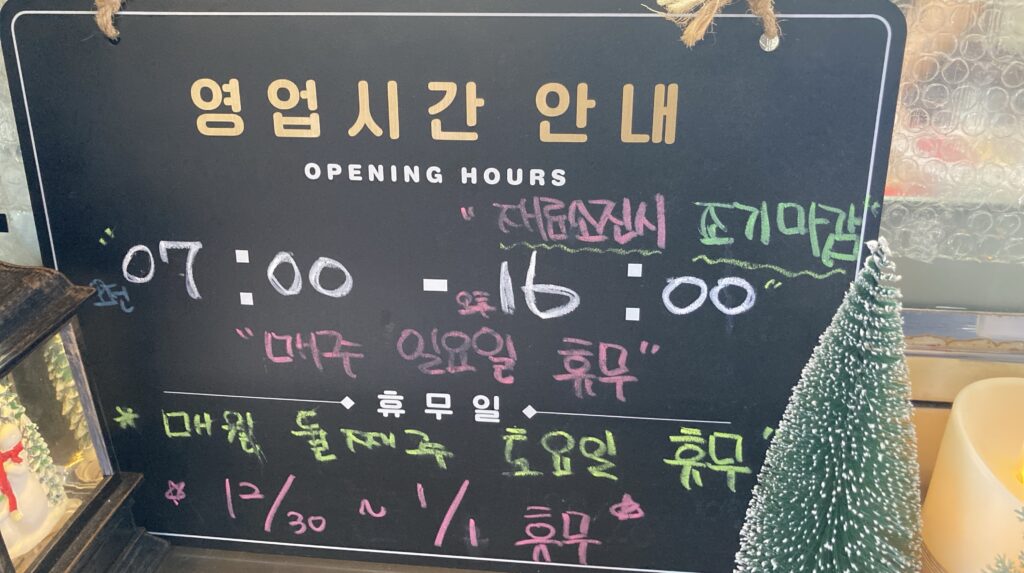 영업시간 안내
OPENING HOURS
"재료소진시 조기마감"
오전 07:00 - 오후 16:00
"매주 일요일 휴무"
휴무일
* 매월 둘째주 토요일 휴무"
☆ 12/30 ~ 1/1 휴무 ☆